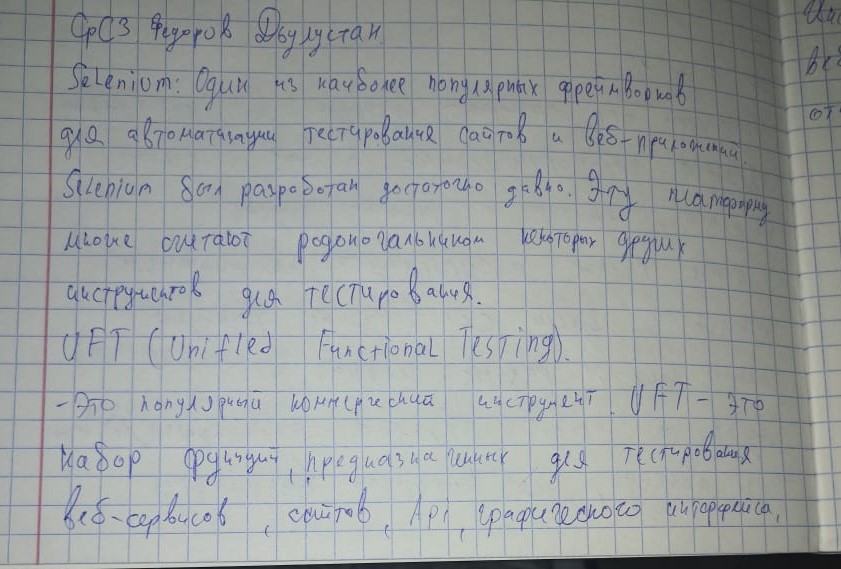 СРС3 Федоров Дьулустан
Selenium: Один из наиболее популярных фреймворков
для автоматизации тестирования сайтов и веб-приложений.
Selenium был разработан достаточно давно. Эту платформу
многие считают родоначальником некоторых других
инструментов для тестирования.
UFT (Unified Functional Testing).
- Это популярный коммерческий инструмент. UFT - это
набор функций, предназначенных для тестирования
веб-сервисов, сайтов, Api, графического интерфейса,